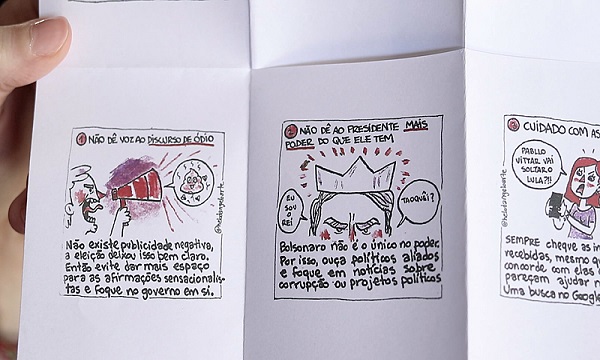 1 NÃO DÊ VOZ AO DISCURSO DE ÓDIO
@helodangeloarte
Não existe publicidade negativa,
a eleição deixou isso bem claro.
Então evite dar mais espaço
para as afirmações sensacionalis-
tas e foque no governo em si.
2 NÃO DÊ AO PRESIDENTE MAIS
PODER DO QUE ELE TEM
EU
SOU
O
REI
TAOQUÊI?
Bolsonaro não é o único no poder.
Por isso, ouça políticos aliados
e foque em notícias sobre
corrupção ou projetos políticos
3 CUIDADO COM AS
@helodangeloarte
PABLLO
VITTAR VAI
SOLTAR O
LULA?!!
SEMPRE cheque as in
recebidas, mesmo qu
concorde com elas
pareçam ajudar n
Uma busca no Google